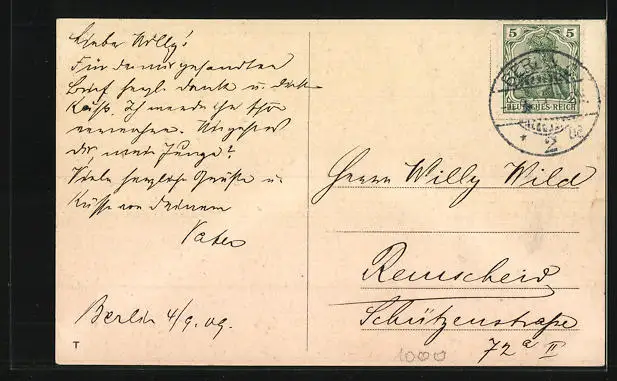 Lieber Willy!
Für den mir gesandten
Brief herzl. Dank u. dick
Kuss. Ich werde ihn schön
Wie geht es
Dir, mein Junge?
Viele herzliche Grüße u.
Küsse von Deinem
Vater
Berlin 4/9.09.
T
5 5
DEUTSCHES REICH
BERLIN
* 2
Herrn Willy Wild
Remscheid
Schützenstraße
72a II
1000